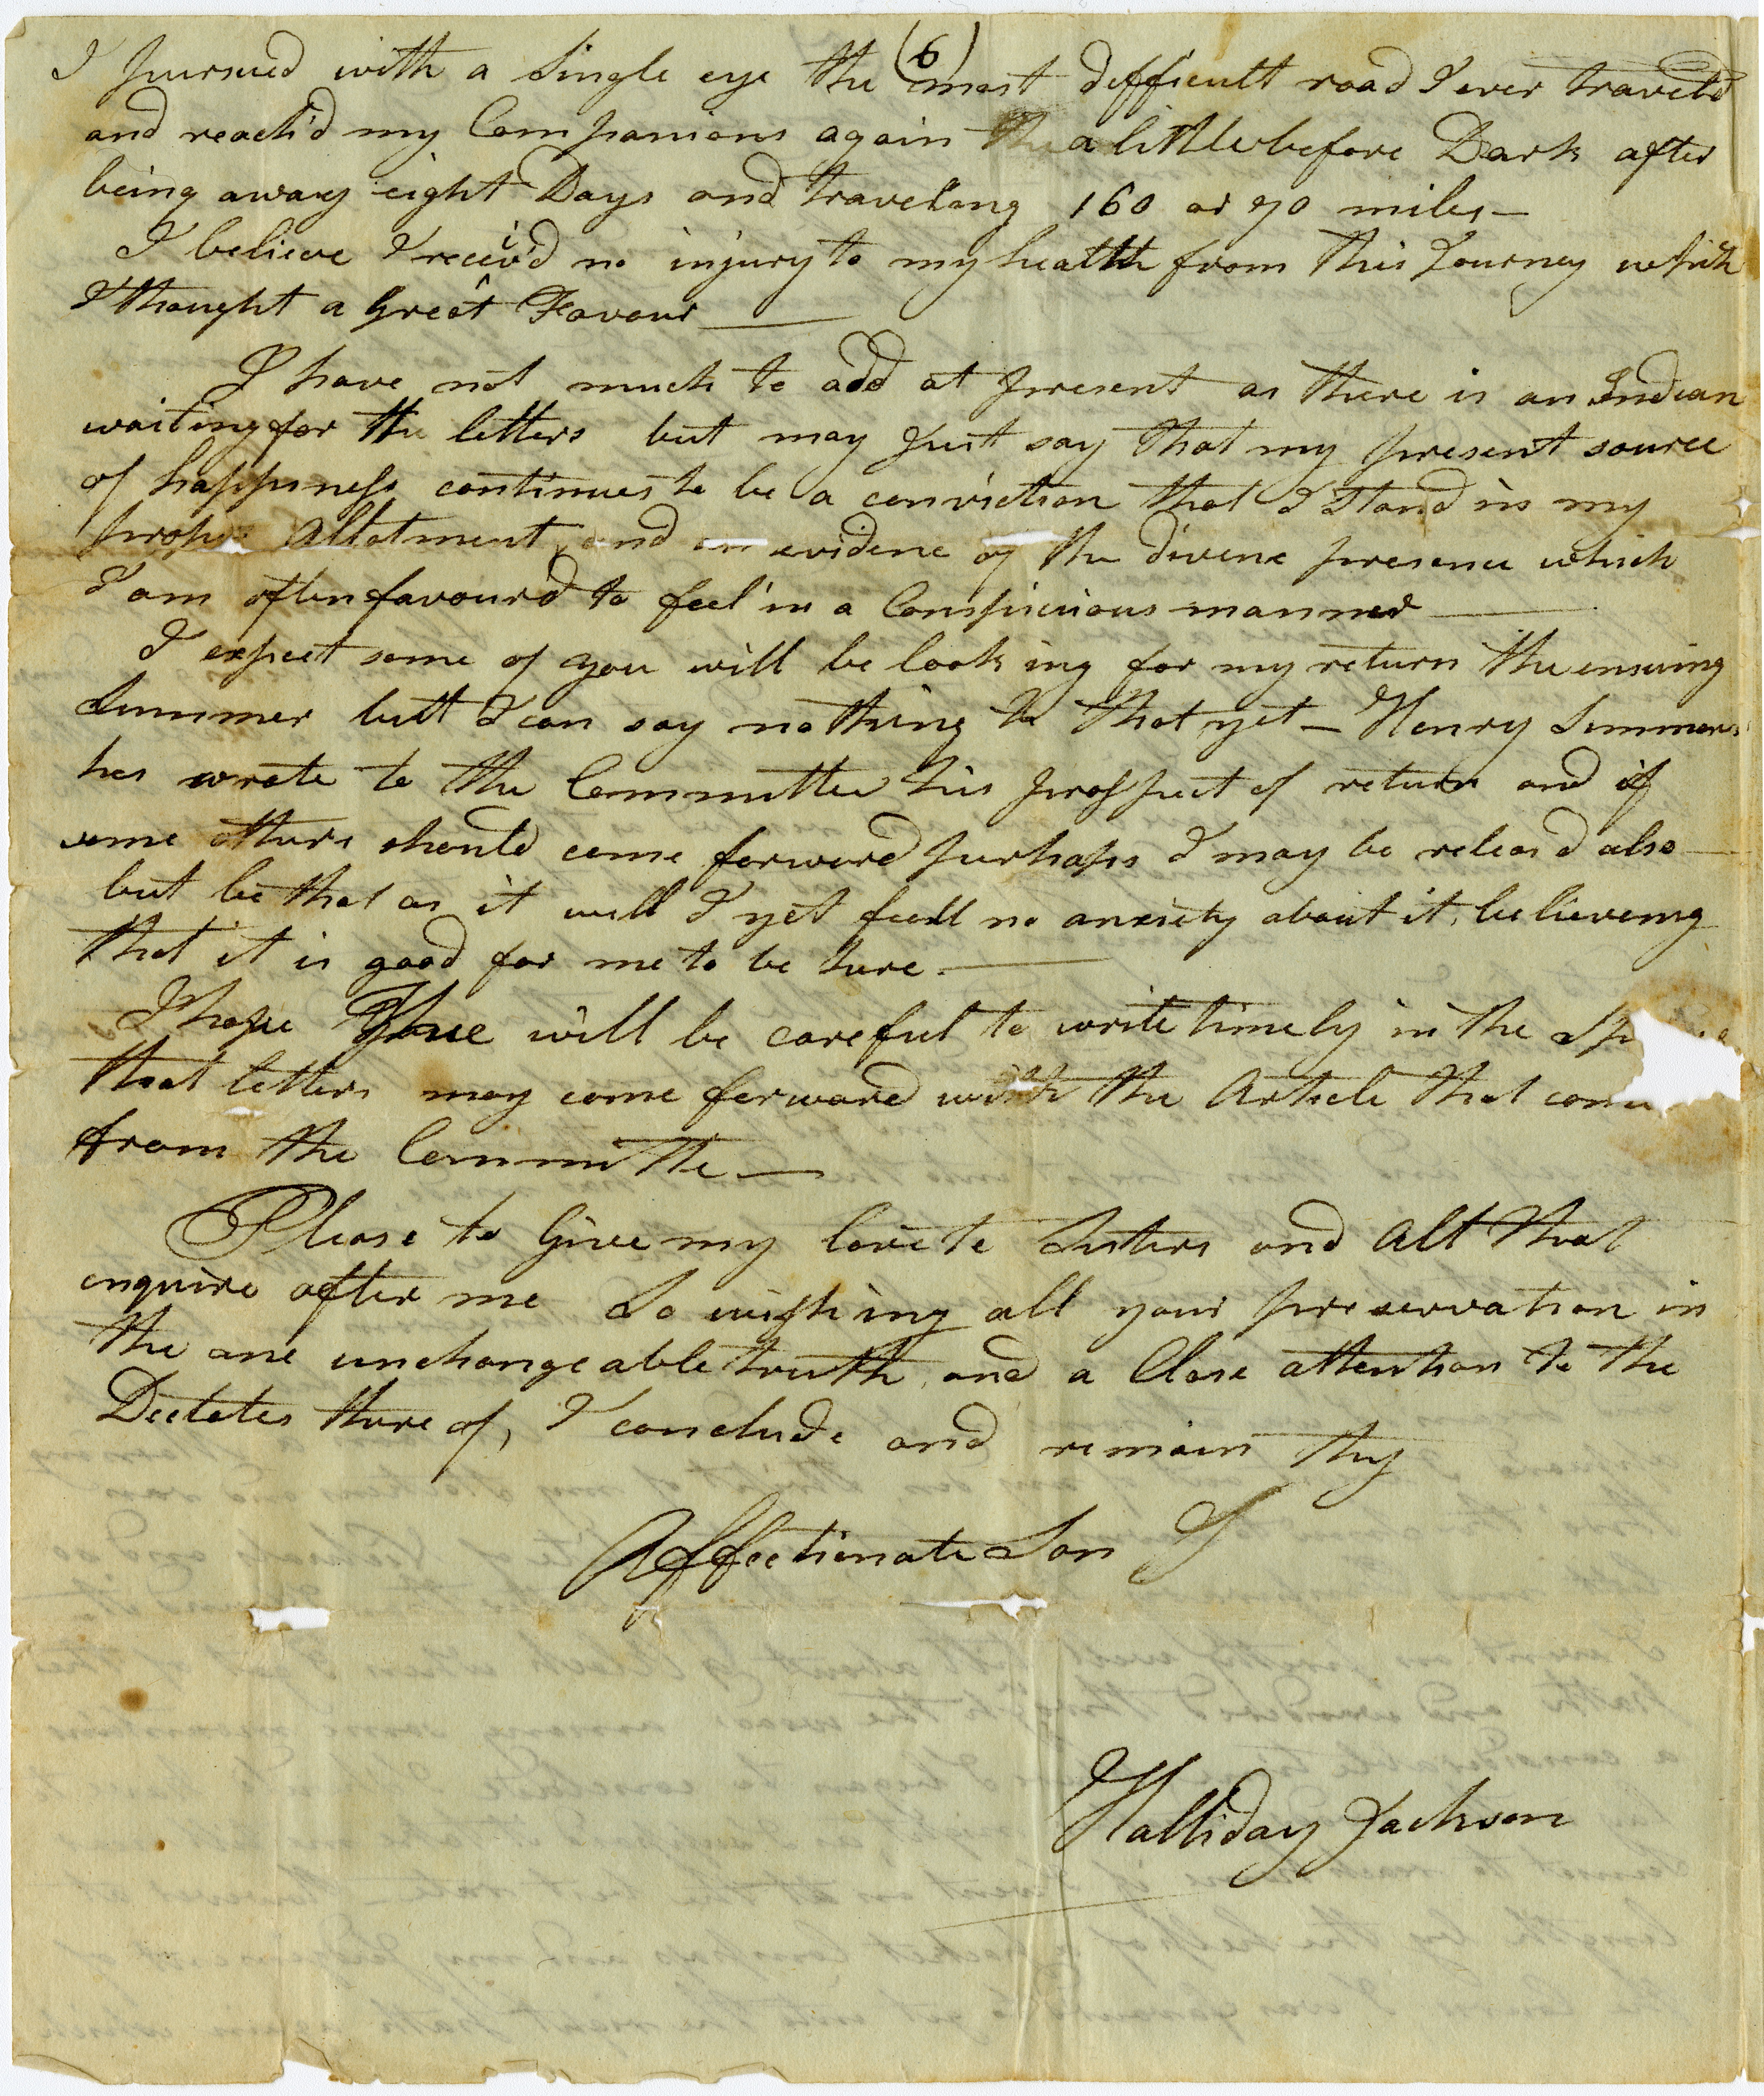 (6)
I pursued with a Single eye the most difficult road I ever traveld
and reach'd my Companions again a little before Dark after
being away eight Days and traveling 160 or 70 miles —
I believe I receiv'd no injury to my health from this Journey which
I thought a great Favour —
I have not much to add at present as there is an Indian
waiting for the letters but may Just say that my present source
of happiness continues to be a conviction that I Stand in my
proper Allotment, and an evidence of the divine presence which
I am often favour'd to feel in a Conspicuous manner —
I expect some of you will be looking for my return the ensuing
Summer butt I can say nothing to that yet — Henry Simmons
has wrote to the Committee his prospect of return and if
some others should come forward purhaps I may be releas'd also —
but be that as it will I yet feell no anxiety about it, believeing
that it is good for me to be here. —
I hope Thee will be careful to write timely in the
that letters may come forward with the Article that
from the Committe —
Please to Give my love to Sisters and All that
enquire after me So wishing all your preservation in
the one unchangeable truth, and a Close attention to the
Dictates there of, I conclude and remain thy
Affectionate Son
Halliday Jackson